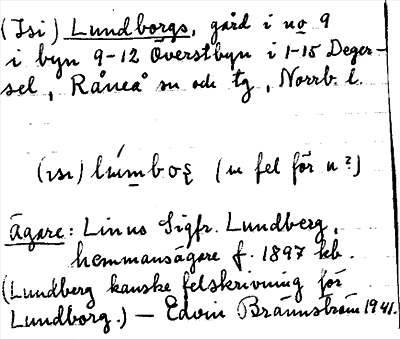 (Isi) Lundborgs, gård i no 9
i byn 9-12 Överstbyn i 1-15 Deger-
sel, Råneå sn och tg, Norrb. l.
(ɪsɪ) lúmboş (m fel för n?)
Ägare: Linus Sigfr. Lundberg,
hemmansägare f. 1897 kb.
(Lundberg kanske felskrivning för
Lundborg.) — Edvin Brännström 1941.